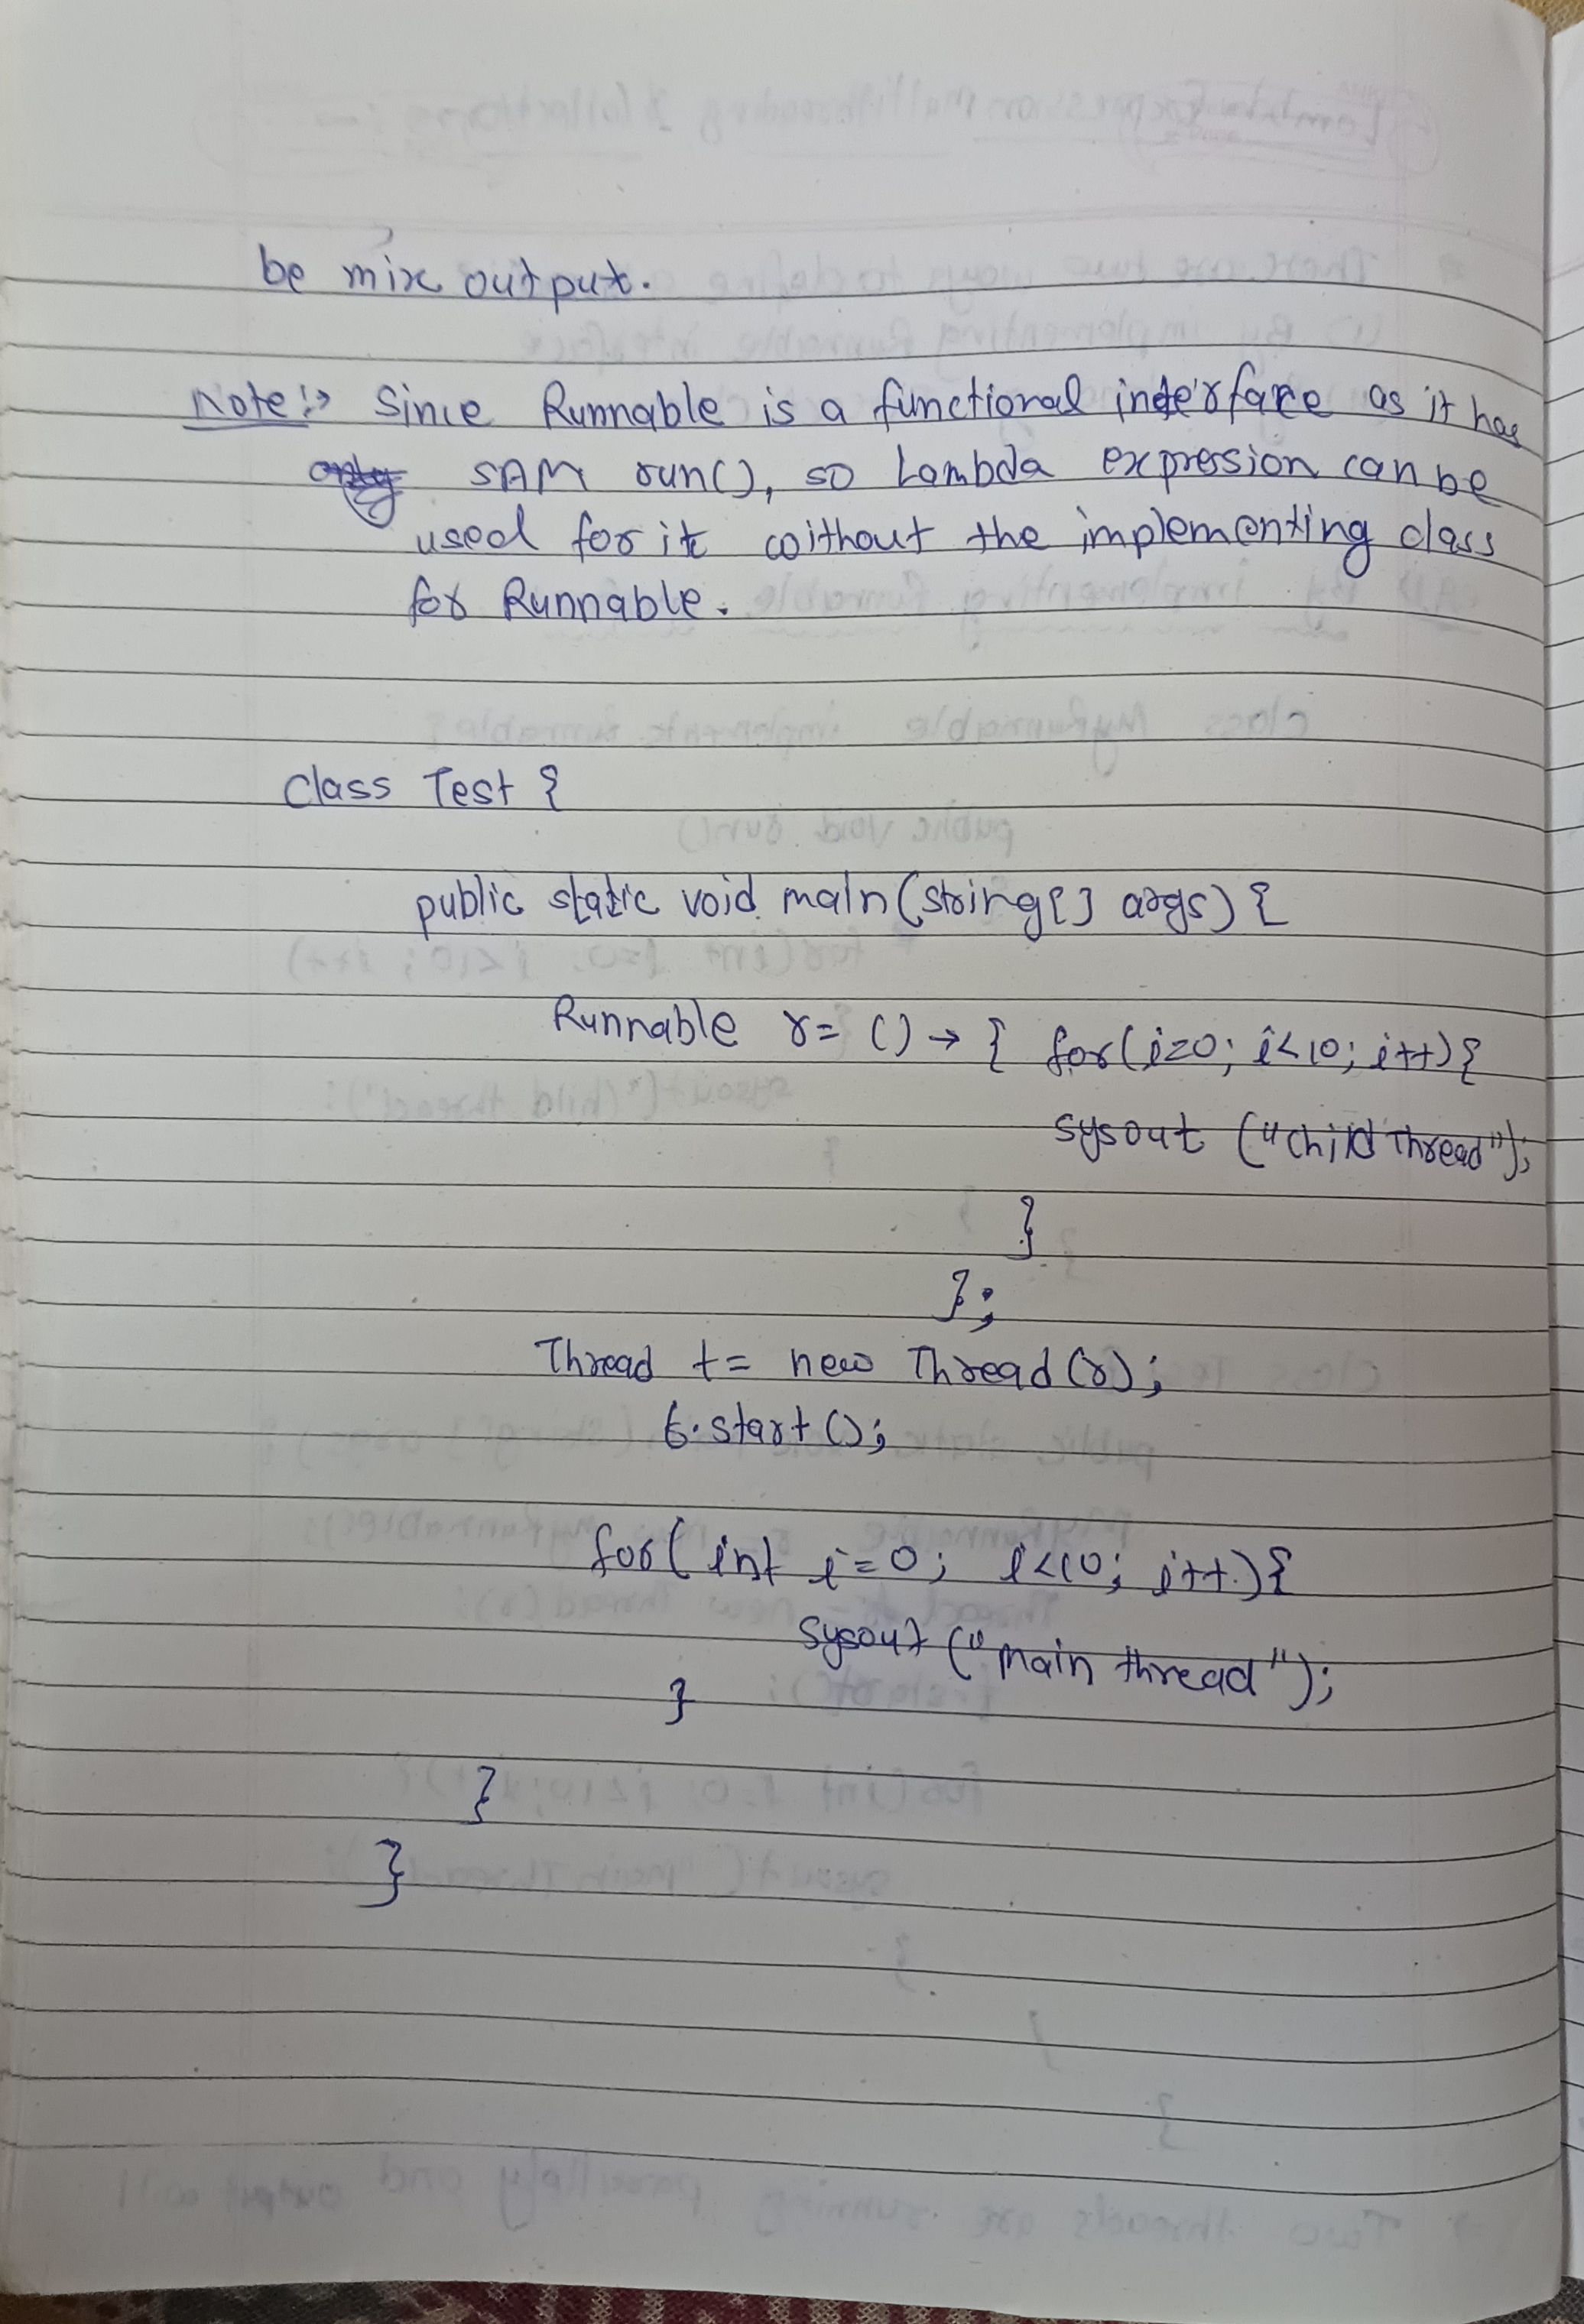 be mix output.
Note:→ Since Runnable is a functional interface as it has
SAM run(), so Lambda expression can be
used for it without the implementing class
for Runnable.
class Test {
public static void main(string[] args) {
Runnable r= () → { for(i=0; i<10; i++){
sysout ("child Thread");
}
};
Thread t= new Thread(r);
t.start();
for( int i=0; i<10; i++){
sysout ("main thread");
}
}
}